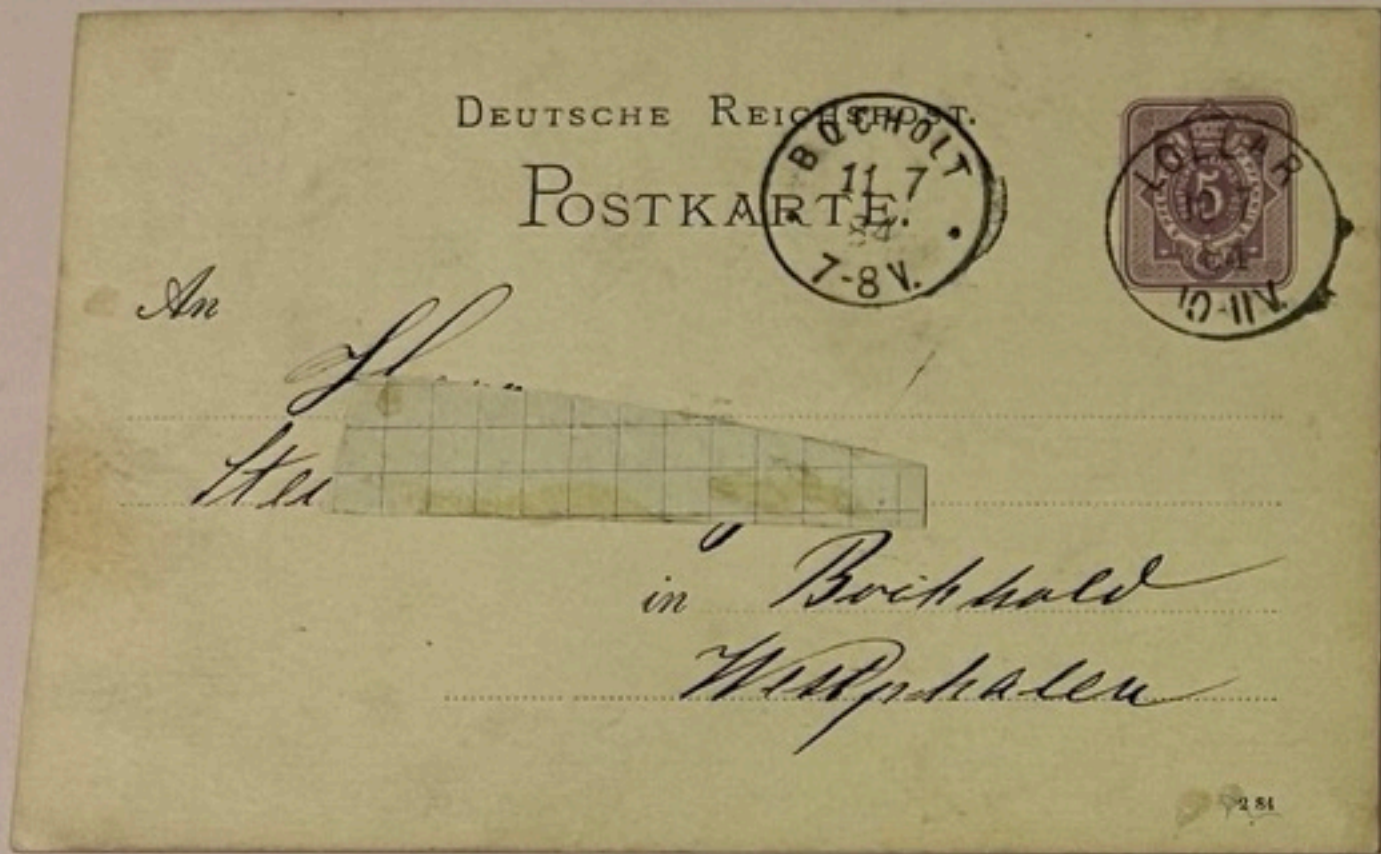 DEUTSCHE REICHSPOST.
POSTKARTE.
BOCHOLT
11 7
84
7-8 V.
LOLLAR
5
84
10-11 V.
An
in Bochhold
Westphalen
2 84